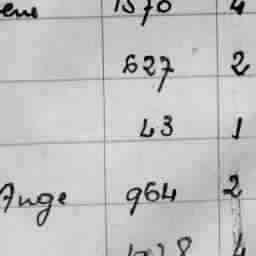 ene 1570 4
627 2
43 1
Ange 964 2
4